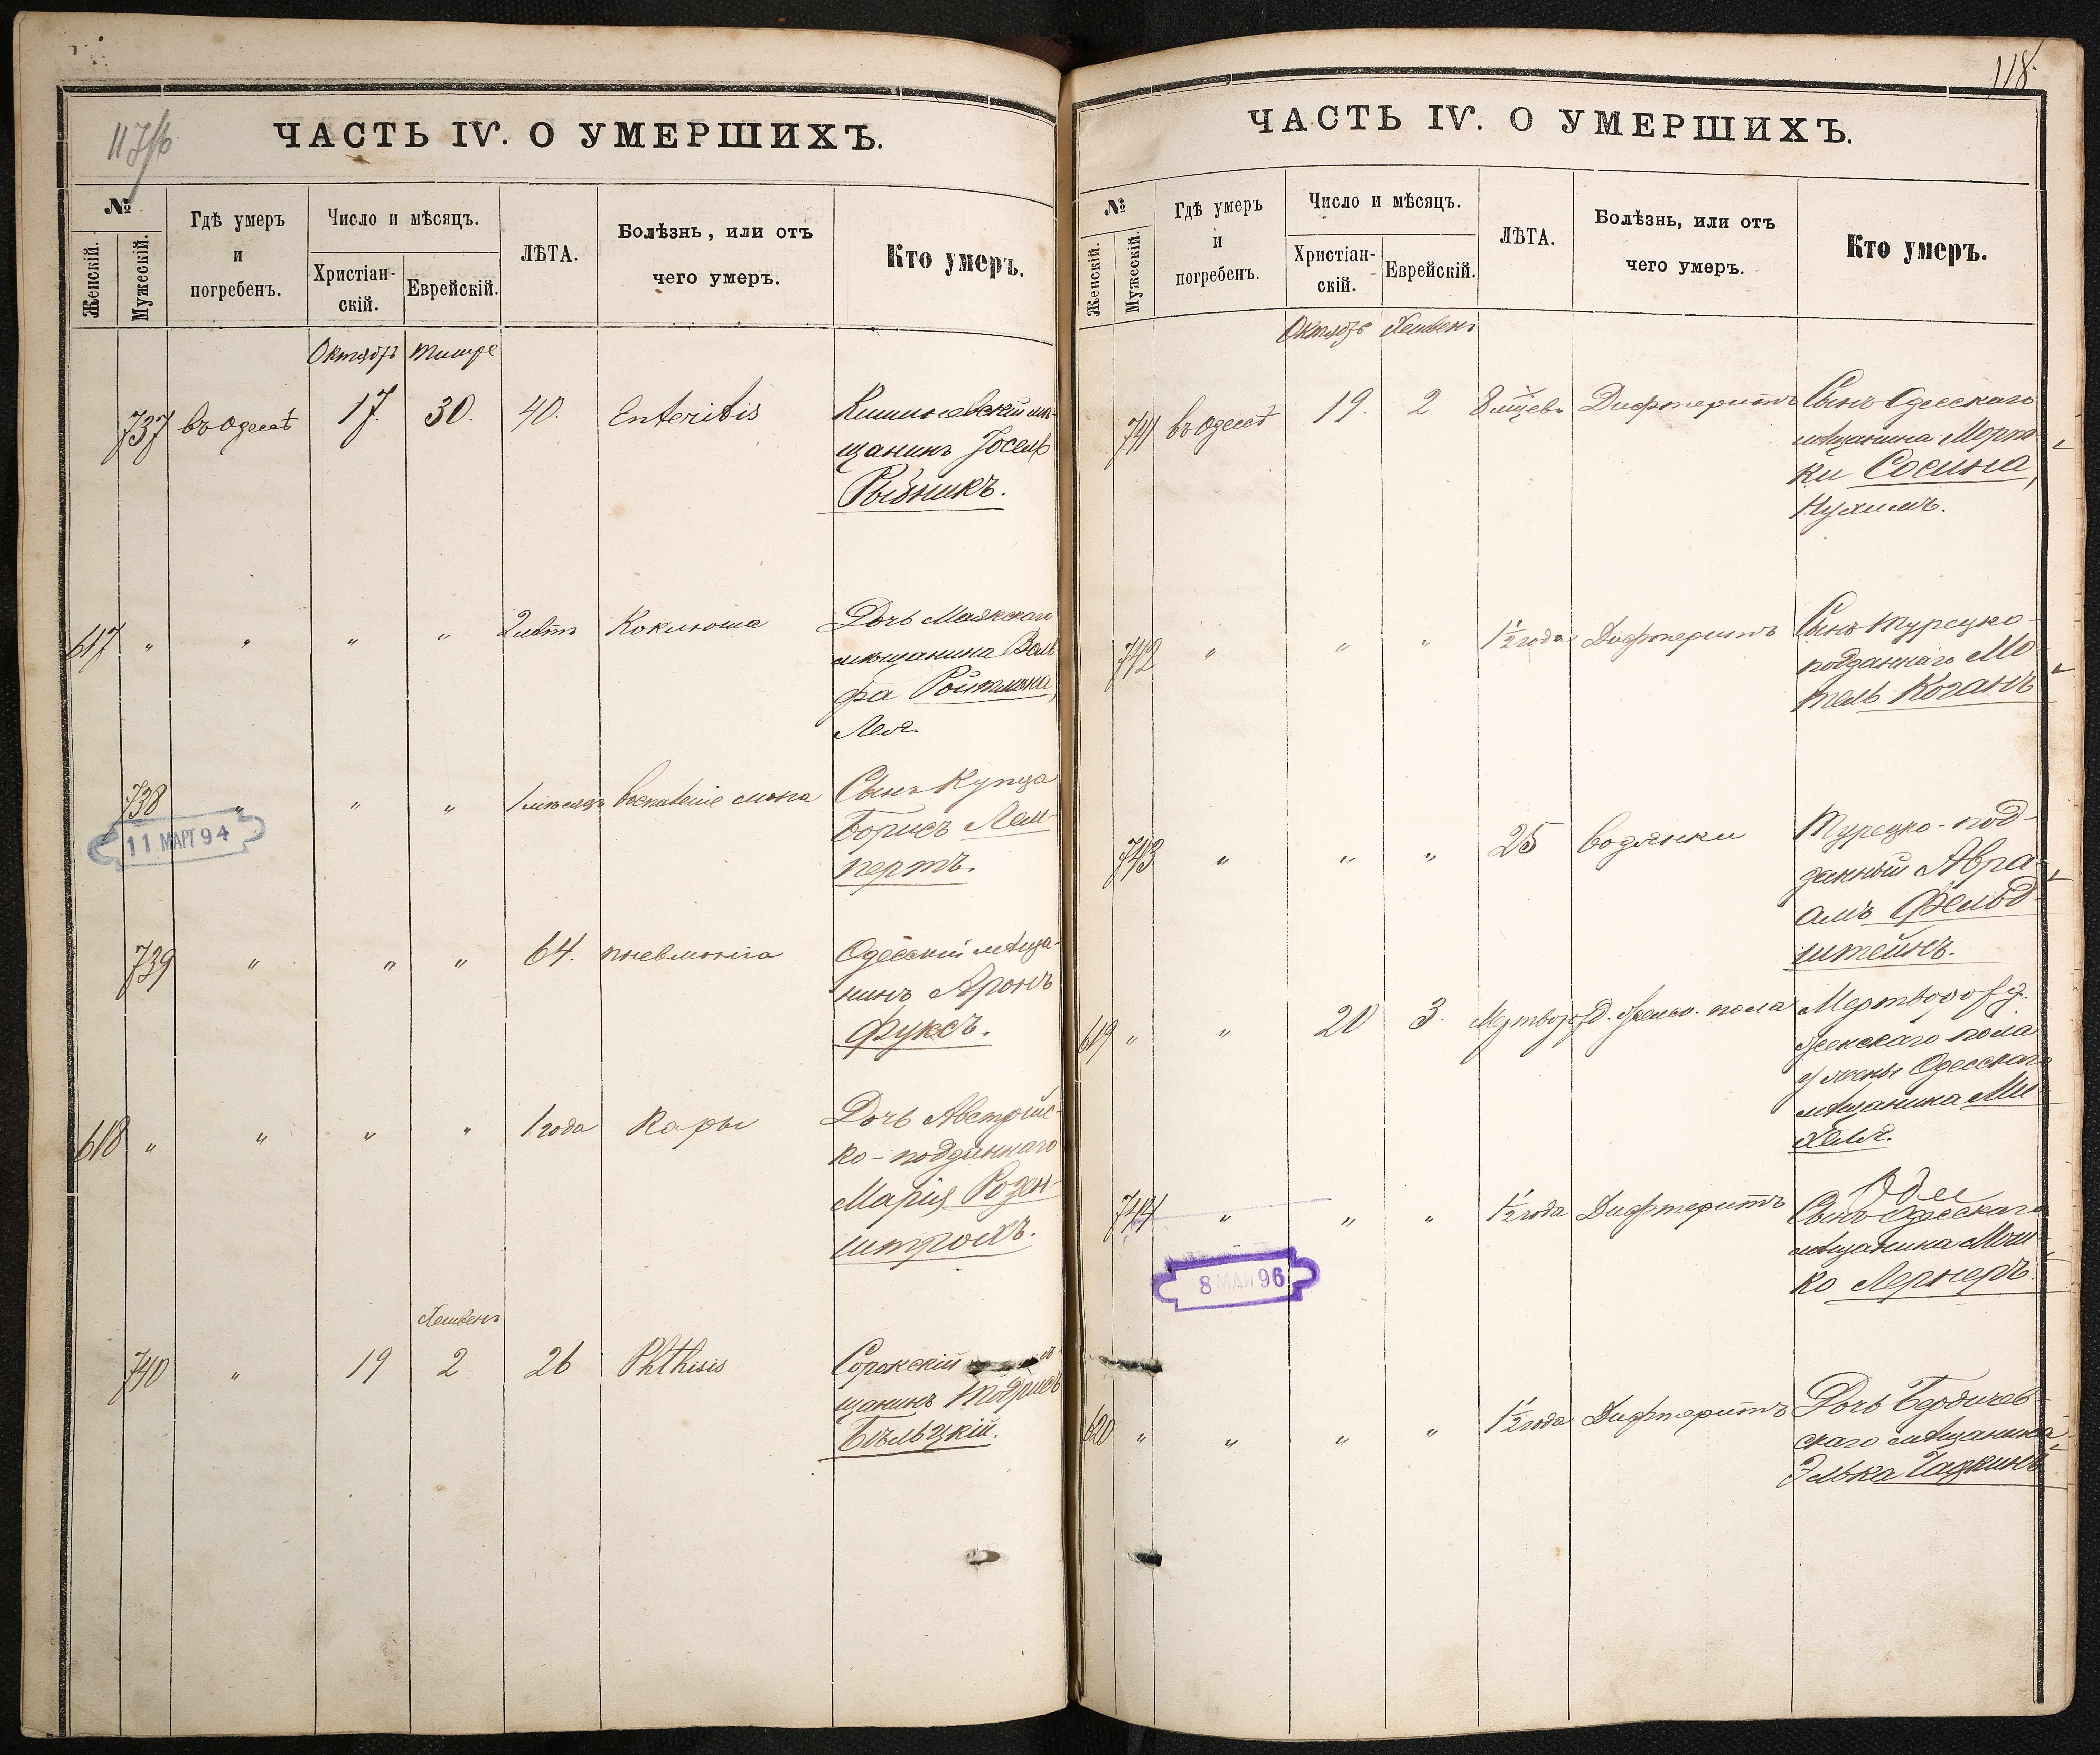 117/16
ЧАСТЬ IV. О УМЕРШИХЪ.
№
Женскій.
Мужескій.
Гдѣ умеръ
и
погребенъ.
Число и мѣсяцъ.
Христіан-
скій.
Еврейскій.
ЛѢТА.
Болѣзнь, или отъ
чего умеръ.
Кто умеръ.
Октябрь Тишре
737 въ Одессѣ 17. 30. 40. Enteritis Кишиневскій мѣ-
щанинъ Іосель
Рыбникъ.
617 " " " " 2 лѣтъ Коклюша Дочь Маякскаго
мѣщанина Воль
фа Ройтмана,
Лея.
738 " " " 1 мѣсяцъ воспаленіе мозга Сынъ Купца
Борисъ Лем-
пертъ.
11 МАРТ 94
739 " " " 64. пневмонія Одесскій мѣща-
нинъ Аронъ
Фуксъ.
618 " " " " 1 года Коры Дочь Австрійс-
ко-подданнаго
Марія Розен-
штрохъ.
Хешвенъ
740 " 19 2 26 Phthisis Сорокскій
щанинъ Тодрисъ
Бѣльцкій.
118.
ЧАСТЬ IV. О УМЕРШИХЪ.
№
Женскій.
Мужескій.
Гдѣ умеръ
и
погребенъ.
Число и мѣсяцъ.
Христіан-
скій.
Еврейскій.
ЛѢТА.
Болѣзнь, или отъ
чего умеръ.
Кто умеръ.
Октябрь Хешвенъ
741 въ Одессѣ 19. 2 8 мѣсцевъ Дифтеритъ Сынъ Одесскаго
мѣщанина Мордк
ки Сосина,
Нухимъ.
742 " " " 1½ года Дифтеритъ Сынъ Турецко-
подданнаго Мо
тель Коганъ
743 " " " 25 водянки Турецко-под-
данный Авра-
амъ Фельд-
штейнъ.
619 " " 20 3. Мертворожд. женск. пола Мертворожд.
женскаго пола
у жены Одесскаго
мѣщанина Ми-
хеля.
744 " " " 1½ года Дифтеритъ Сынъ Одесскаго
мѣщанина Мош
ко Лернеръ.
8 МАЙ 96
620 " " " " 1½ года Дифтеритъ Дочь Бердичев-
скаго мѣщанина
Элька Чацкинъ